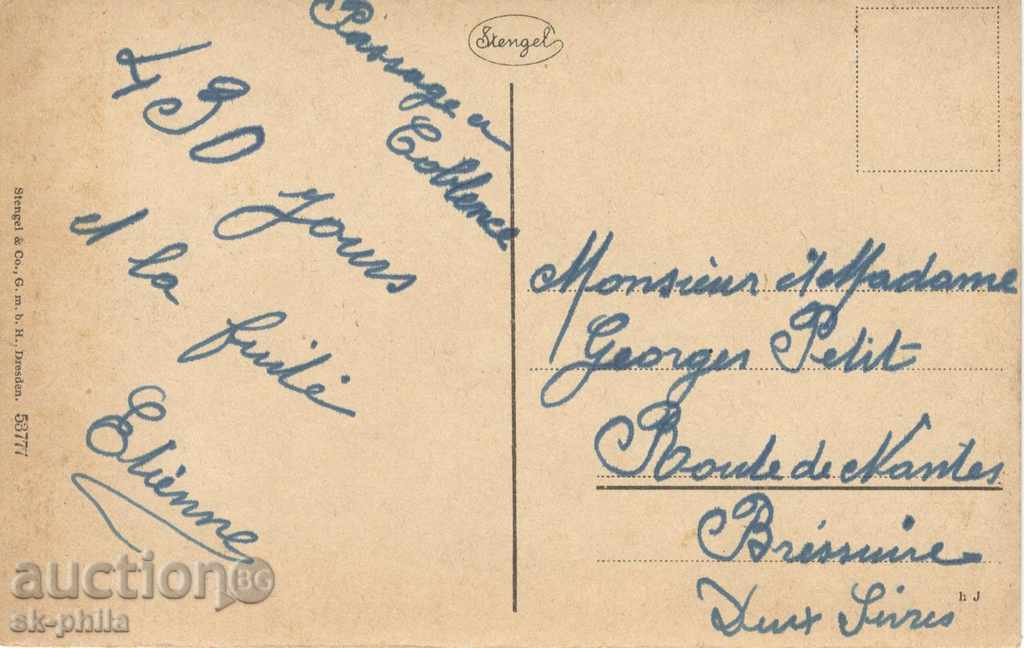 Passage a
Coblence
490 jours
et la
fuité
Etienne
Stengel
Monsieur et Madame
Georges Petit
Route de Nantes
Bressuire
Deux Sèvres
h J
Stengel & Co., G. m. b. H., Dresden. 53777
auction BG
sk-phila